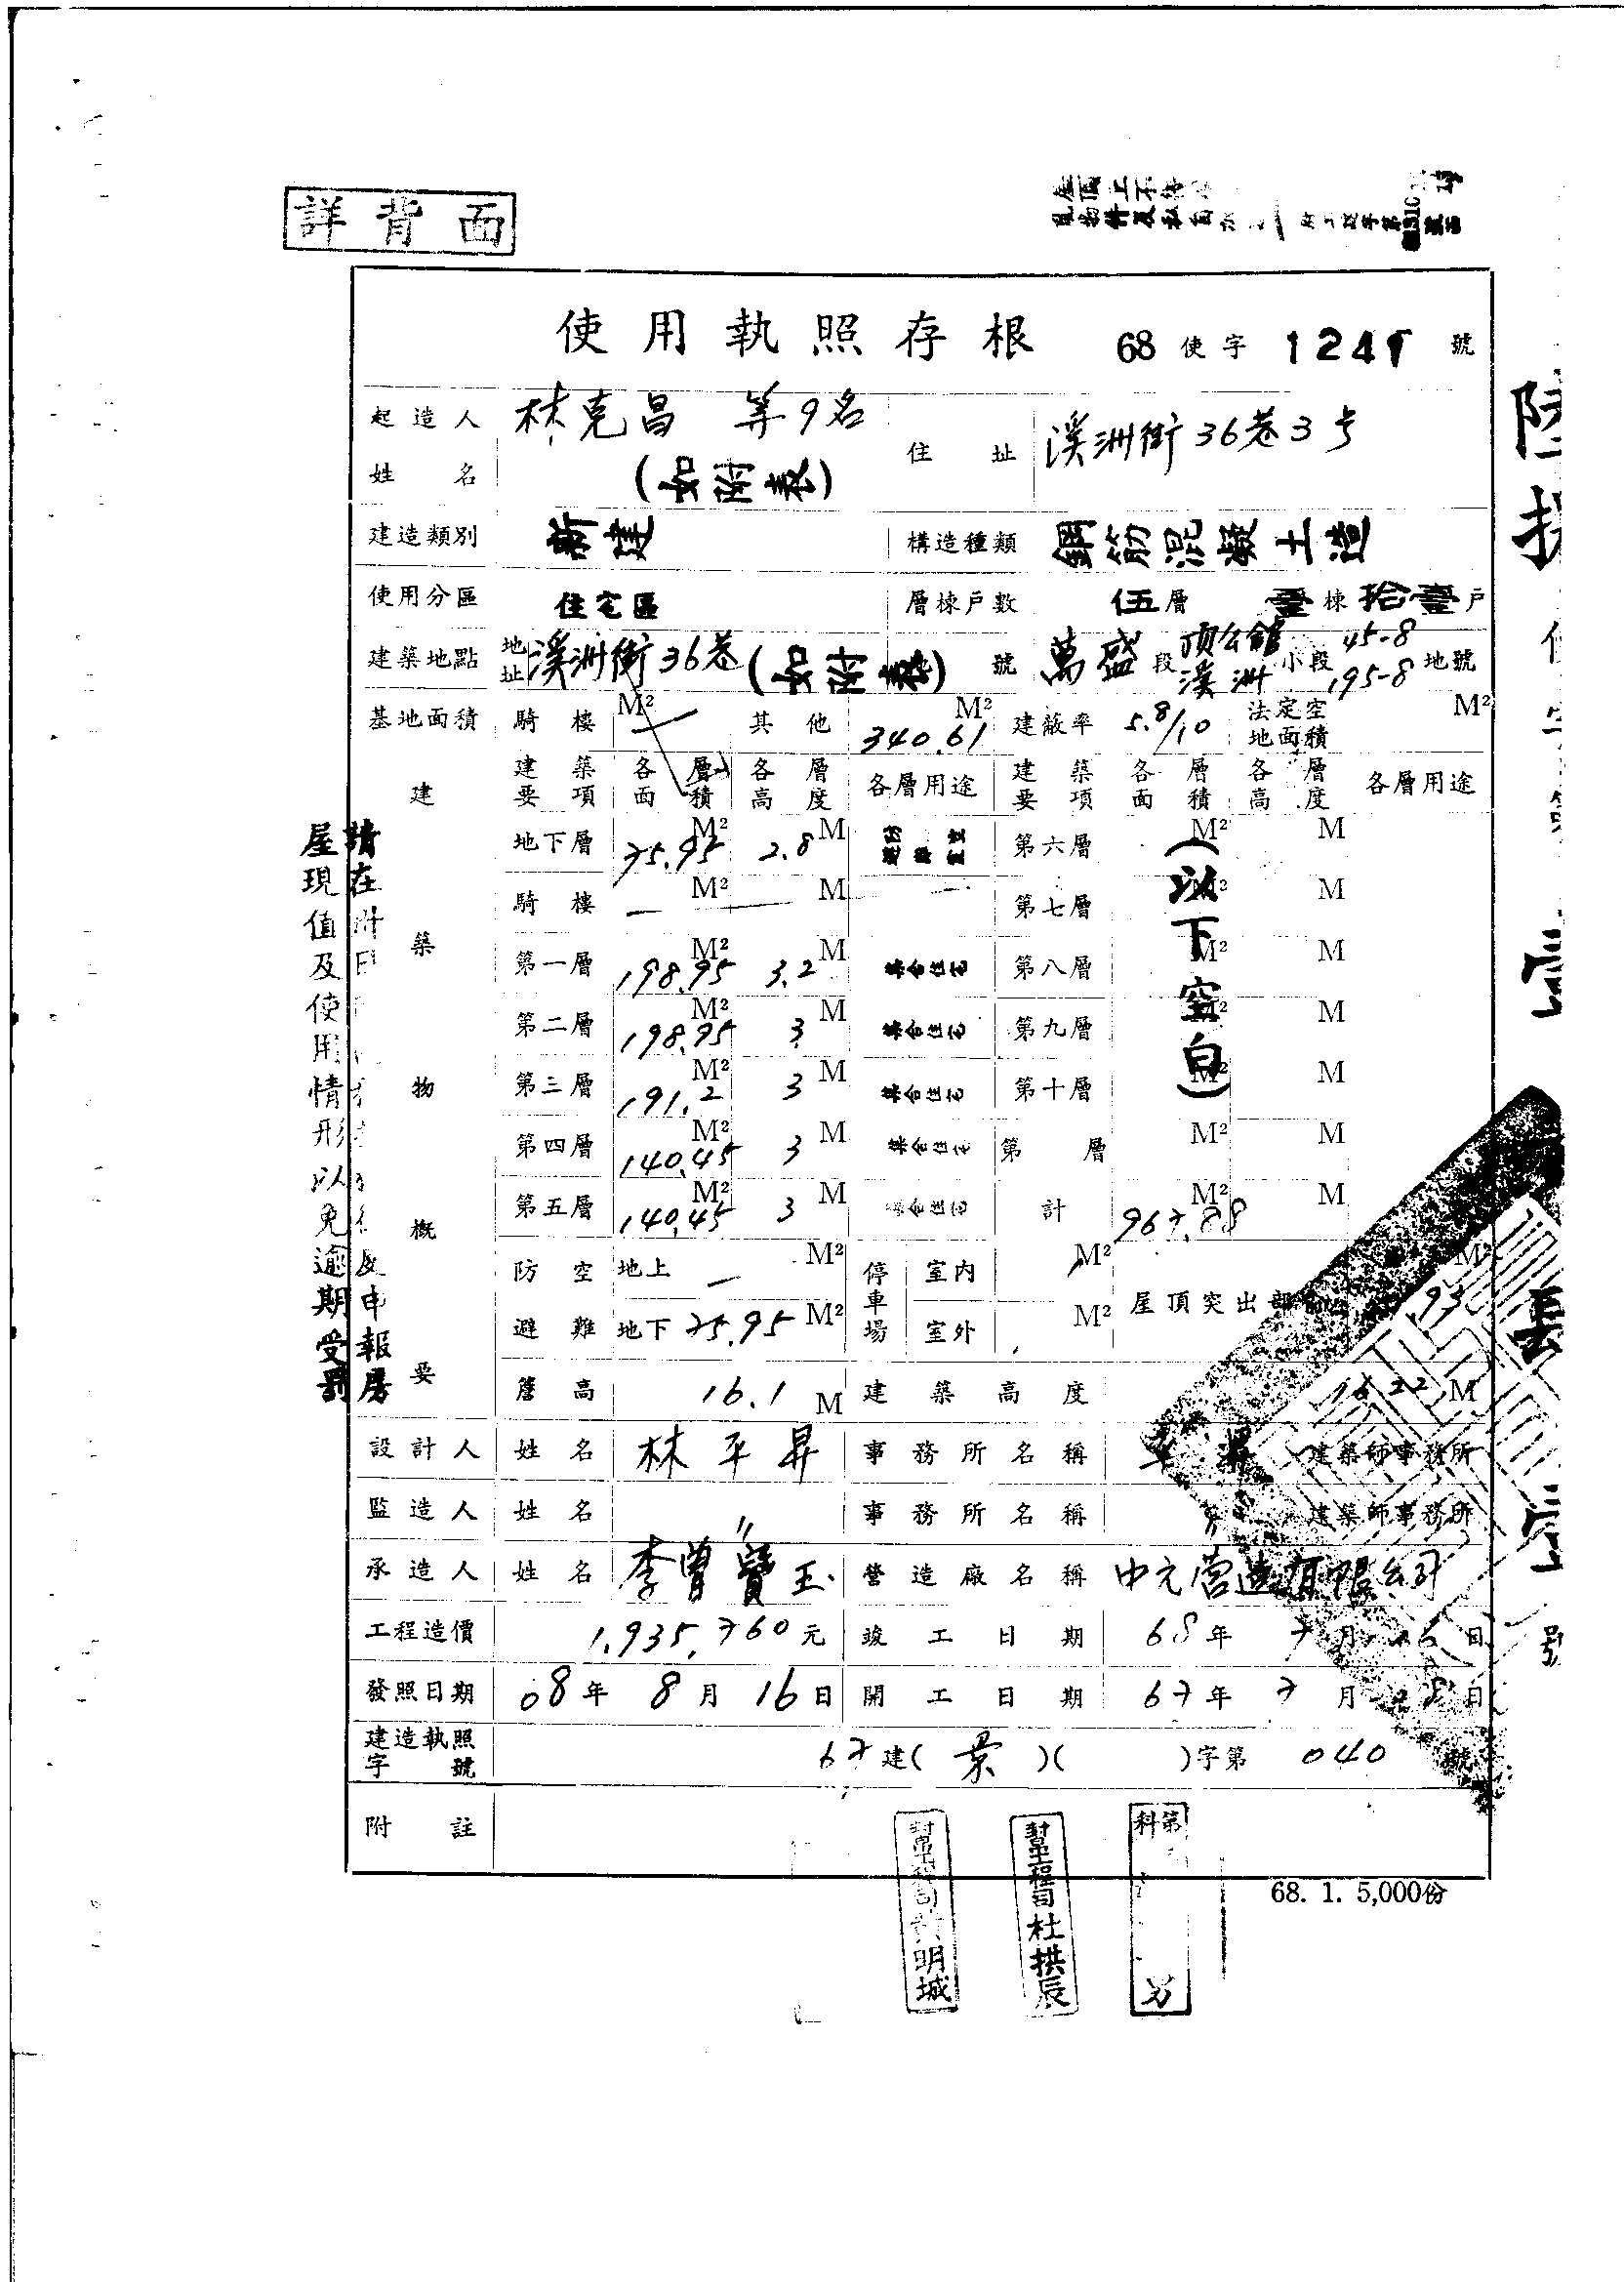 詳背面
使用執照存根 68使字 124 號
起造人姓名 林克昌 等9名 (如附表) 住址 溪洲街36巷3号
建造類別 新建 構造種類 鋼筋混凝土造
使用分區 住宅區 層棟戶數 伍層 壹棟 拾壹戶
建築地點 地址 溪洲街36巷 (如附表) 號 萬盛段 頂公館 溪洲 小段 45-8 195-8 地號
基地面積 騎樓 M² — 其他 340.61 M² 建蔽率 5.8/10 法定空地面積 M²
建築物概要
建築要項 各層面積 各層高度 各層用途 建築要項 各層面積 各層高度 各層用途
地下層 75.95 M² 2.8 M 第六層 M² M
騎樓 — M² — M 第七層 M² M
第一層 198.95 M² 3.2 M 集合住宅 第八層 M² M
第二層 198.95 M² 3 M 集合住宅 第九層 M² M
第三層 191.2 M² 3 M 集合住宅 第十層 M² M
第四層 140.45 M² 3 M 集合住宅 第 層 M² M
第五層 140.45 M² 3 M 集合住宅 計 967.88 M² M
(以下空白)
防空避難 地上 — M² 停車場 室內 M² 屋頂突出部 .93 M²
地下 75.95 M² 室外 M²
簷高 16.1 M 建築高度 22 M
設計人 姓名 林平昇 事務所名稱 建築師事務所
監造人 姓名 〃 事務所名稱 〃 建築師事務所
承造人 姓名 李曾寶玉 營造廠名稱 中元营造有限公司
工程造價 1,935,760元 竣工日期 68年7月 日
發照日期 68年8月16日 開工日期 67年7月 日
建造執照字號 67建(景)( )字第 040 號
附註
68. 1. 5,000份
請在 申報房
屋現值及使用情形以免逾期受罰
幫工程司 明城
幫工程司杜拱辰
第 科